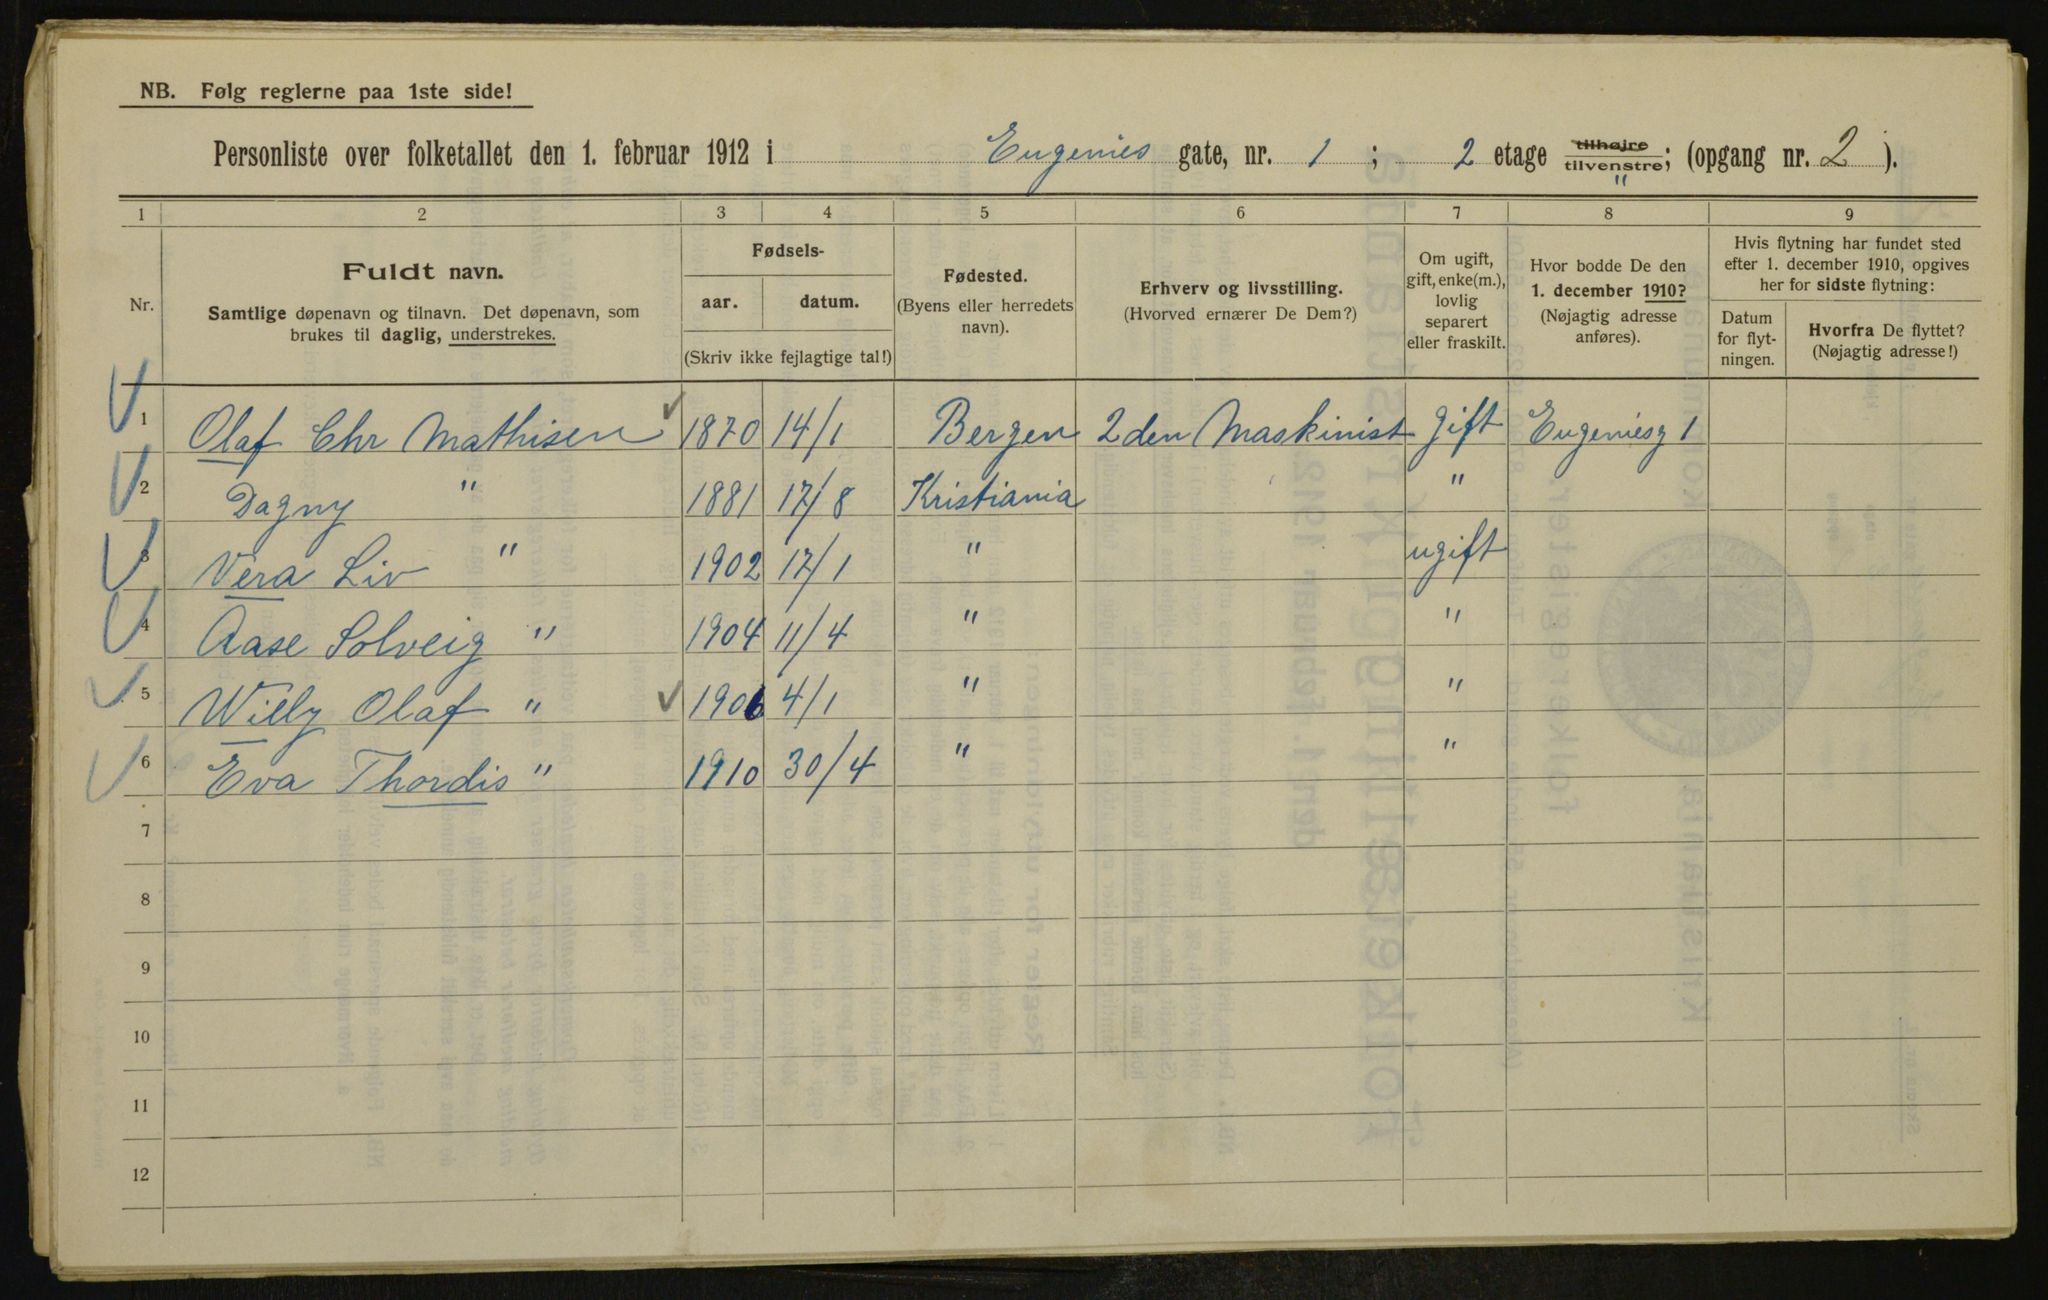 NB. Følg reglerne paa 1ste side!
Personliste over folketallet den 1. februar 1912 i Eugenies gate, nr. 1 ; 2 etage tilhøjre tilvenstre; (opgang nr. 2 ).
"
1 2 3 4 5 6 7 8 9
Nr.
Fuldt navn.
Samtlige døpenavn og tilnavn. Det døpenavn, som
brukes til daglig, understrekes.
Fødsels-
aar. datum.
(Skriv ikke fejlagtige tal!)
Fødested.
(Byens eller herredets
navn).
Erhverv og livsstilling.
(Hvorved ernærer De Dem?)
Om ugift,
gift, enke(m.),
lovlig
separert
eller fraskilt.
Hvor bodde De den
1. december 1910?
(Nøjagtig adresse
anføres).
Hvis flytning har fundet sted
efter 1. december 1910, opgives
her for sidste flytning:
Datum
for flyt-
ningen.
Hvorfra De flyttet?
(Nøjagtig adresse!)
1 Olaf Chr Mathisen 1870 14/1 Bergen 2den Maskinist gift Eugeniesg 1
2 Dagny " 1881 17/8 Kristiania "
3 Vera Liv " 1902 17/1 " ugift
4 Aase Solveig " 1904 11/4 " "
5 Willy Olaf " 1906 4/1 " "
6 Eva Thordis " 1910 30/4 " "
7
8
9
10
11
12